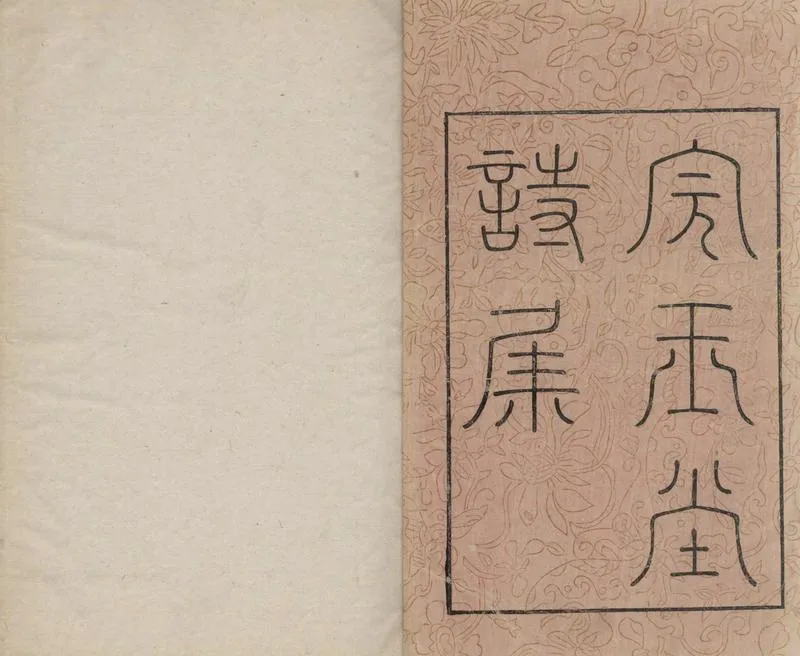 完玉堂
詩集